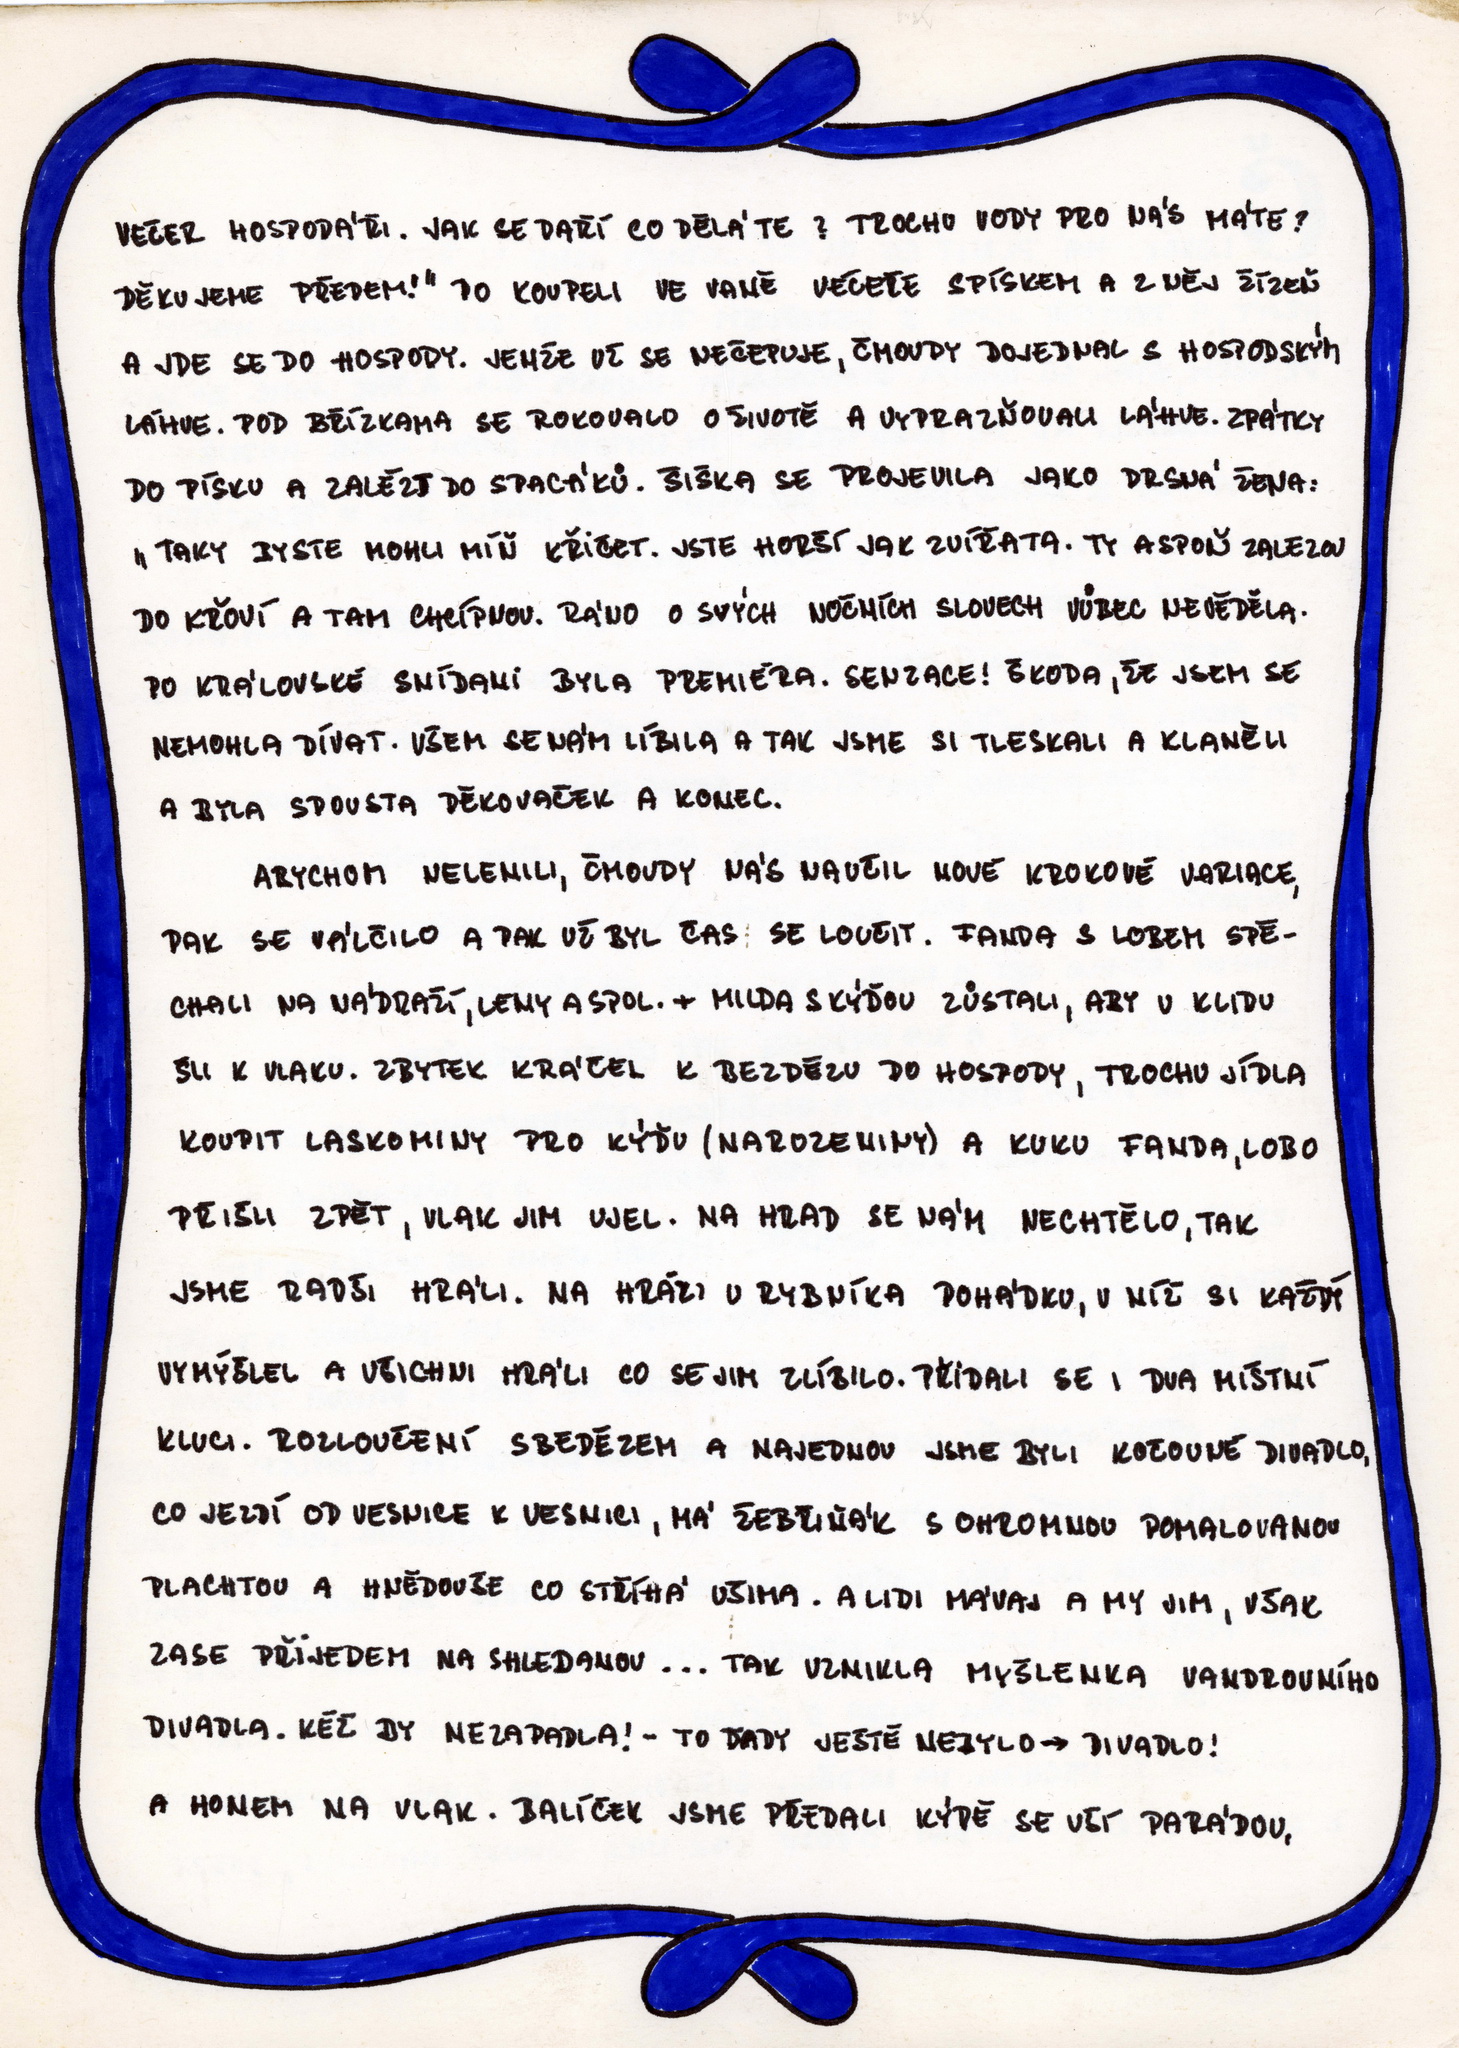 VEČER HOSPODÁŘI. JAK SE DAŘÍ CO DĚLÁTE? TROCHU VODY PRO NÁS MÁTE?
DĚKUJEME PŘEDEM!" PO KOUPELI VE VANĚ VEČEŘE S PÍSKEM A Z NĚJ ŽÍZEŇ
A JDE SE DO HOSPODY. JENŽE UŽ SE NEČEPUJE, ČMOUDY DOJEDNAL S HOSPODSKÝM
LÁHVE. POD BŘÍZKAMA SE ROKOVALO O ŽIVOTĚ A VYPRAZŇOVALI LÁHVE. ZPÁTKY
DO PÍSKU A ZALÉZT DO SPACÁKŮ. ŠIŠKA SE PROJEVILA JAKO DRSNÁ ŽENA:
„TAKY BYSTE MOHLI MÍŇ KŘIČET. JSTE HORŠÍ JAK ZVÍŘATA. TY ASPOŇ ZALEZOU
DO KŘOVÍ A TAM CHCÍPNOU. RÁNO O SVÝCH NOČNÍCH SLOVECH VŮBEC NEVĚDĚLA.
PO KRÁLOVSKÉ SNÍDANI BYLA PREMIÉRA. SENZACE! ŠKODA, ŽE JSEM SE
NEMOHLA DÍVAT. VŠEM SE NÁM LÍBILA A TAK JSME SI TLESKALI A KLANĚLI
A BYLA SPOUSTA DĚKOVAČEK A KONEC.
ABYCHOM NELENILI, ČMOUDY NÁS NAUČIL NOVÉ KROKOVÉ VARIACE,
PAK SE VÁLČILO A PAK UŽ BYL ČAS SE LOUČIT. FANDA S LOBEM SPĚ-
CHALI NA NÁDRAŽÍ, LENY A SPOL. + MILDA S KÝĎOU ZŮSTALI, ABY V KLIDU
ŠLI K VLAKU. ZBYTEK KRÁČEL K BEZDĚZU DO HOSPODY, TROCHU JÍDLA
KOUPIT LASKOMINY PRO KÝĎU (NAROZENINY) A KUKU FANDA, LOBO
PŘIŠLI ZPĚT, VLAK JIM UJEL. NA HRAD SE NÁM NECHTĚLO, TAK
JSME RADŠI HRÁLI. NA HRÁZI U RYBNÍKA POHÁDKU, V NÍŽ SI KAŽDÝ
VYMÝŠLEL A VŠICHNI HRÁLI CO SE JIM ZLÍBILO. PŘIDALI SE I DVA MÍSTNÍ
KLUCI. ROZLOUČENÍ S BEDĚZEM A NAJEDNOU JSME BYLI KOČOVNÉ DIVADLO,
CO JEZDÍ OD VESNICE K VESNICI, MÁ ŽEBŘIŇÁK S OHROMNOU POMALOVANOU
PLACHTOU A HNĚDOUŠE CO STŘÍHÁ UŠIMA. A LIDI MÁVAJ A MY JIM, VŠAK
ZASE PŘIJEDEM NA SHLEDANOU... TAK VZNIKLA MYŠLENKA VANDROVNÍHO
DIVADLA. KÉŽ BY NEZAPADLA! - TO TADY JEŠTĚ NEBYLO → DIVADLO!
A HONEM NA VLAK. BALÍČEK JSME PŘEDALI KÝDĚ SE VŠÍ PARÁDOU,